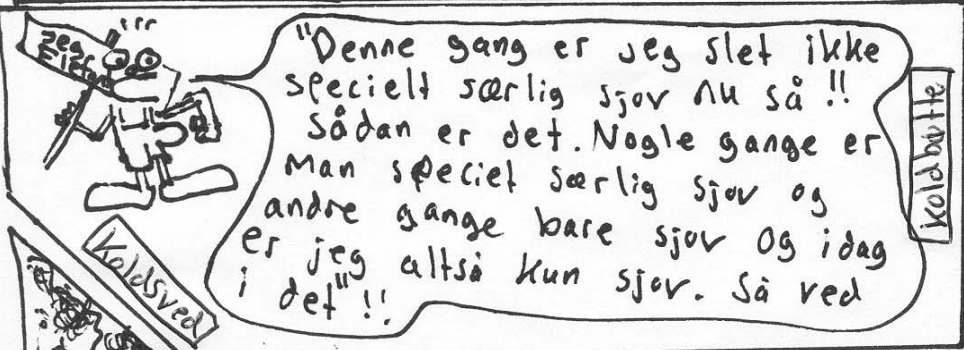 Jeg
"Denne gang er jeg slet ikke
specielt særlig sjov nu så!!
Sådan er det. Nogle gange er
man speciet særlig sjov og
andre gange bare sjov og idag
er jeg altså kun sjov. Så ved
i det"!!
Koldbøtte
Koldsved